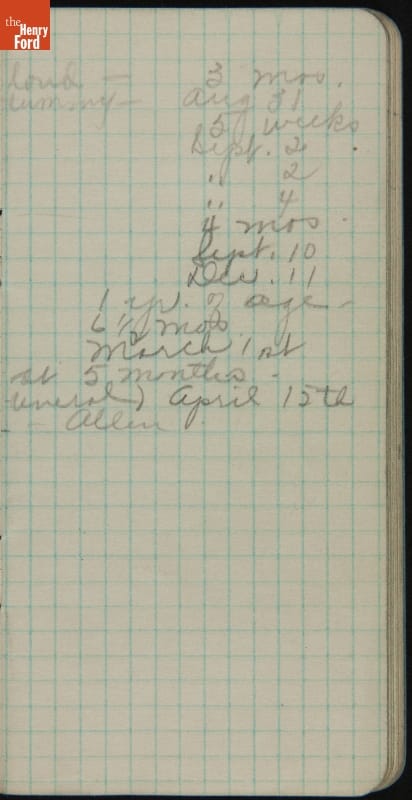 the
Henry
Ford
loud — 3 mos.
tummy — Aug 31
5 weeks
Sept. 2
" 2
" 4
4 mos.
Sept. 10
Dec. 11
1 yr. of age —
6 ½ mos.
March 1st
at 5 months —
uneral) April 15th
— Allen